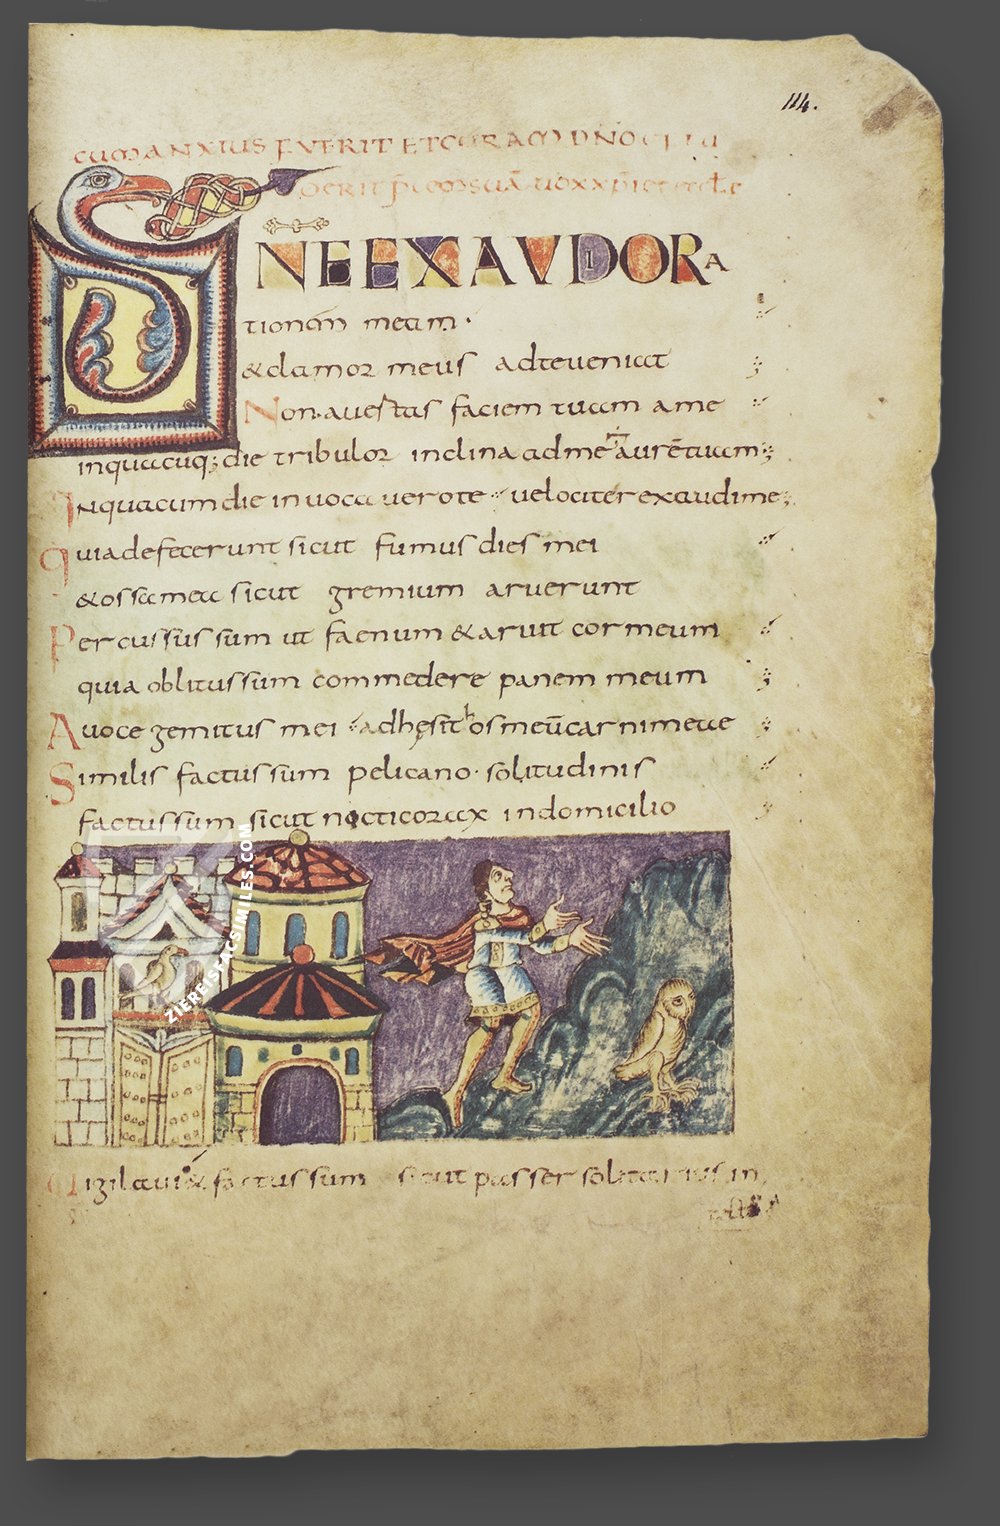 114.
CUM ANXIUS FUERIT ET CORAM DNO
DNE EXAUDI ORA
tionem meam·
& clamor meus ad te veniat
Non avertas faciem tuam a me
in quacuq; die tribulor inclina ad me aurē tuam;
In quacum die invocavero te velociter exaudi me;
quia defecerunt sicut fumus dies mei
& ossa mea sicut gremium aruerunt
Percussus sum ut faenum & aruit cor meum
quia oblitus sum commedere panem meum
A voce gemitus mei adhesit os meū carni meae
Similis factus sum pelicano· solitudinis
factus sum sicut nocticorax in domicilio
ZIEREISFACSIMILES.COM
Vigilavi & factus sum sicut passer solitarius in
tecto